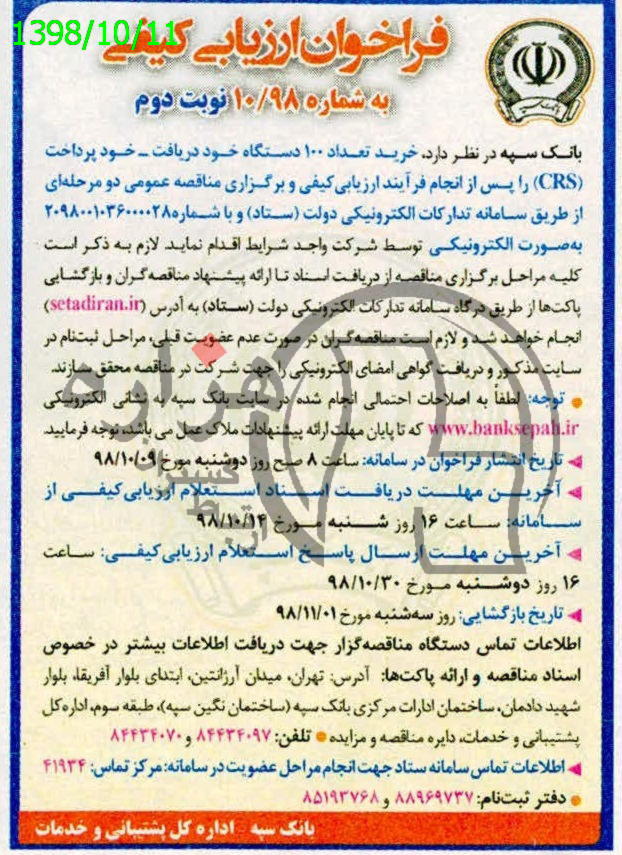 1398/10/11
فراخوان ارزیابی کیفی
به شماره ۱۰/۹۸ نوبت دوم
بانک سپه در نظر دارد، خرید تعداد ۱۰۰ دستگاه خود دریافت ـ خود پرداخت
(CRS) را پس از انجام فرآیند ارزیابی کیفی و برگزاری مناقصه عمومی دو مرحله‌ای
از طریق سامانه تدارکات الکترونیکی دولت (ستاد) و با شماره ۲۰۹۸۰۰۱۰۳۶۰۰۰۰۲۸
به‌صورت الکترونیکی توسط شرکت واجد شرایط اقدام نماید. لازم به ذکر است
کلیه مراحل برگزاری مناقصه از دریافت اسناد تا ارائه پیشنهاد مناقصه‌گران و بازگشایی
پاکت‌ها از طریق درگاه سامانه تدارکات الکترونیکی دولت (ستاد) به آدرس (setadiran.ir)
انجام خواهد شد و لازم است مناقصه‌گران در صورت عدم عضویت قبلی، مراحل ثبت‌نام در
سایت مذکور و دریافت گواهی امضای الکترونیکی را جهت شرکت در مناقصه محقق سازند.
توجه: لطفاً به اصلاحات احتمالی انجام شده در سایت بانک سپه به نشانی الکترونیکی
www.banksepah.ir که تا پایان مهلت ارائه پیشنهادات ملاک عمل می باشد، توجه فرمایید.
تاریخ انتشار فراخوان در سامانه: ساعت ۸ صبح روز دوشنبه مورخ ۹۸/۱۰/۰۹
آخرین مهلت دریافت اسناد استعلام ارزیابی کیفی از
سامانه: ساعت ۱۶ روز شنبه مورخ ۹۸/۱۰/۱۴
آخرین مهلت ارسال پاسخ استعلام ارزیابی کیفی: ساعت
۱۶ روز دوشنبه مورخ ۹۸/۱۰/۳۰
تاریخ بازگشایی: روز سه‌شنبه مورخ ۹۸/۱۱/۰۱
اطلاعات تماس دستگاه مناقصه‌گزار جهت دریافت اطلاعات بیشتر در خصوص
اسناد مناقصه و ارائه پاکت‌ها: آدرس: تهران، میدان آرژانتین، ابتدای بلوار آفریقا، بلوار
شهید دادمان، ساختمان ادارات مرکزی بانک سپه (ساختمان نگین سپه)، طبقه سوم، اداره کل
پشتیبانی و خدمات، دایره مناقصه و مزایده تلفن: ۸۴۴۳۴۰۹۷ و ۸۴۴۳۴۰۷۰
اطلاعات تماس سامانه ستاد جهت انجام مراحل عضویت در سامانه: مرکز تماس: ۴۱۹۳۴
دفتر ثبت‌نام: ۸۸۹۶۹۷۳۷ و ۸۵۱۹۳۷۶۸
بانک سپه اداره کل پشتیبانی و خدمات